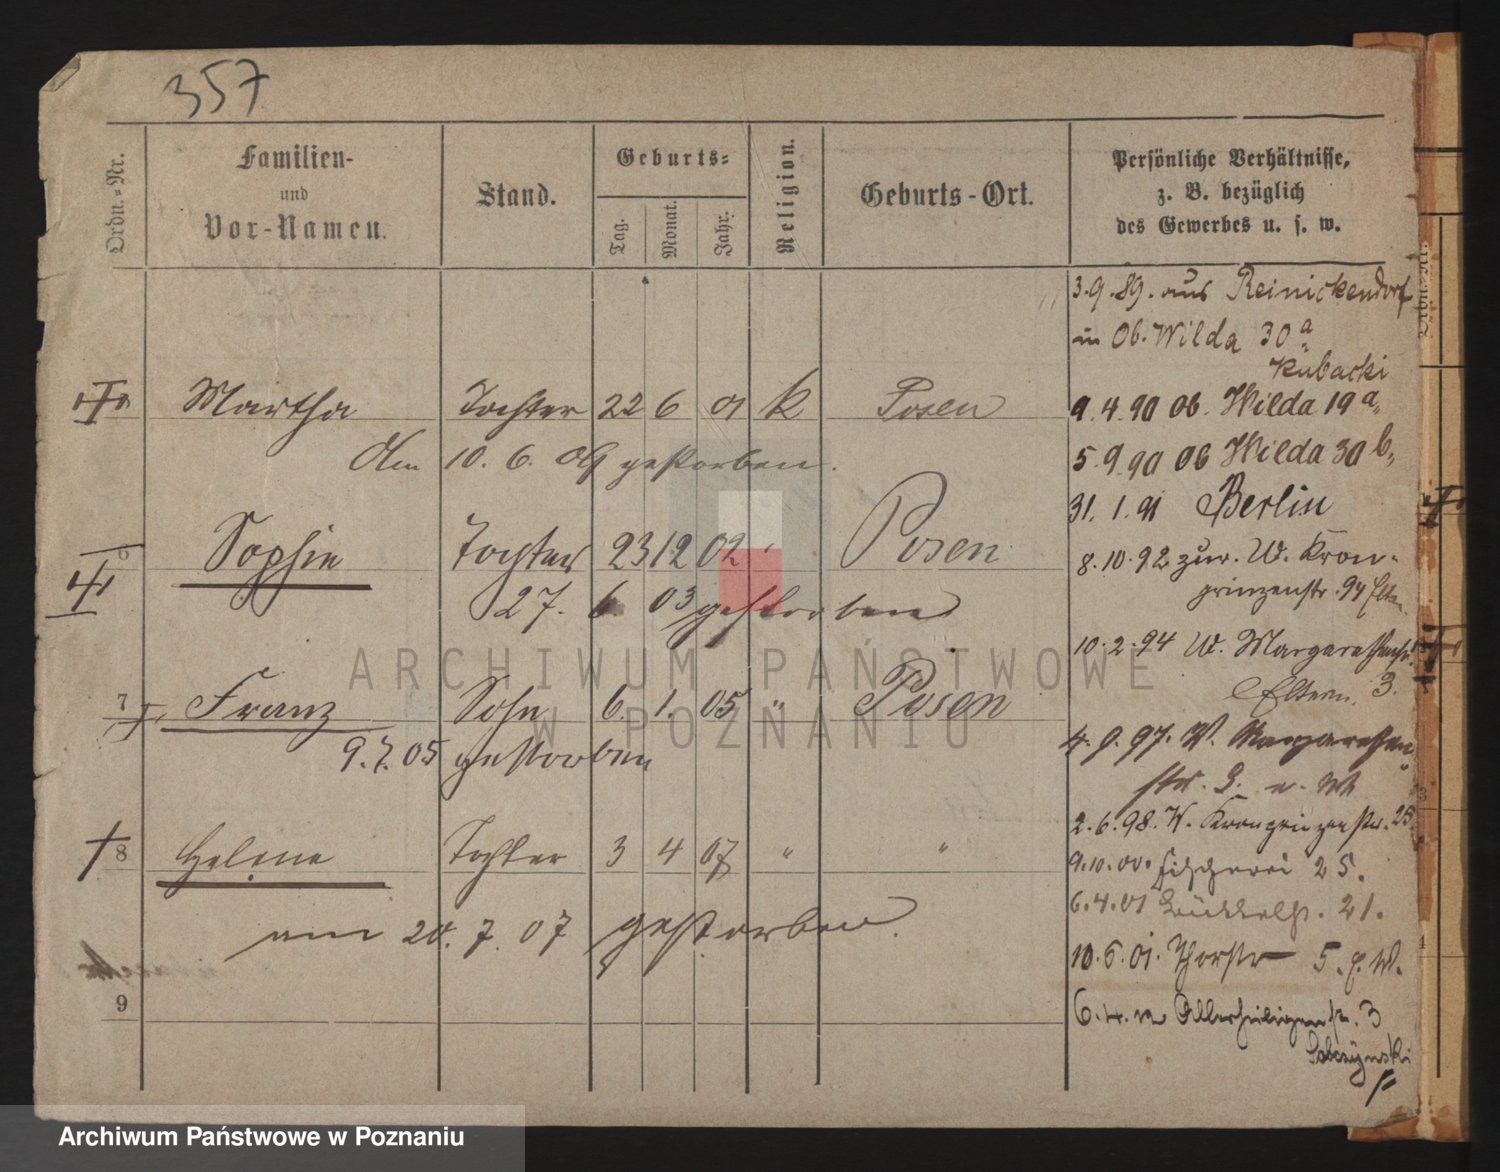 357
Ordn.-Nr.
Familien-
und
Vor-Namen.
Stand.
Geburts-
Tag.
Monat.
Jahr.
Religion.
Geburts-Ort.
Persönliche Verhältnisse,
z. B. bezüglich
des Gewerbes u. s. w.
3.9.89. aus Reinickendorf
in Ob. Wilda 30 a
Kubacki
Martha Tochter 22 6 01 k Posen
9.4.90 Ob. Wilda 19 a
Am 10. 6. 09 gestorben.
5.9.90 Ob Wilda 30 b
31. 1. 91 Berlin
6 Sophie Tochter 23 12 02 " Posen
8.10.92 zur. W. Kron-
prinzenstr. 94 Eltern.
27. 6. 03 gestorben
10.2.94 W. Margarethenstr.
Eltern. 3.
7 Franz Sohn 6. 1. 05 " Posen
4.9.97. W. Margarethen
9.7.05 gestorben
str. 3.
2.6.98. W. Kronprinzenstr. 25
8 Helene Tochter 3 4 07 " "
9.10.00. Fischerei 25.
6.4.01 21.
am 20. 7. 07 gestorben.
10.6.01. Thorstr 5.
9
6.4. Allerheiligenstr. 3
ARCHIWUM PAŃSTWOWE
W POZNANIU
Archiwum Państwowe w Poznaniu